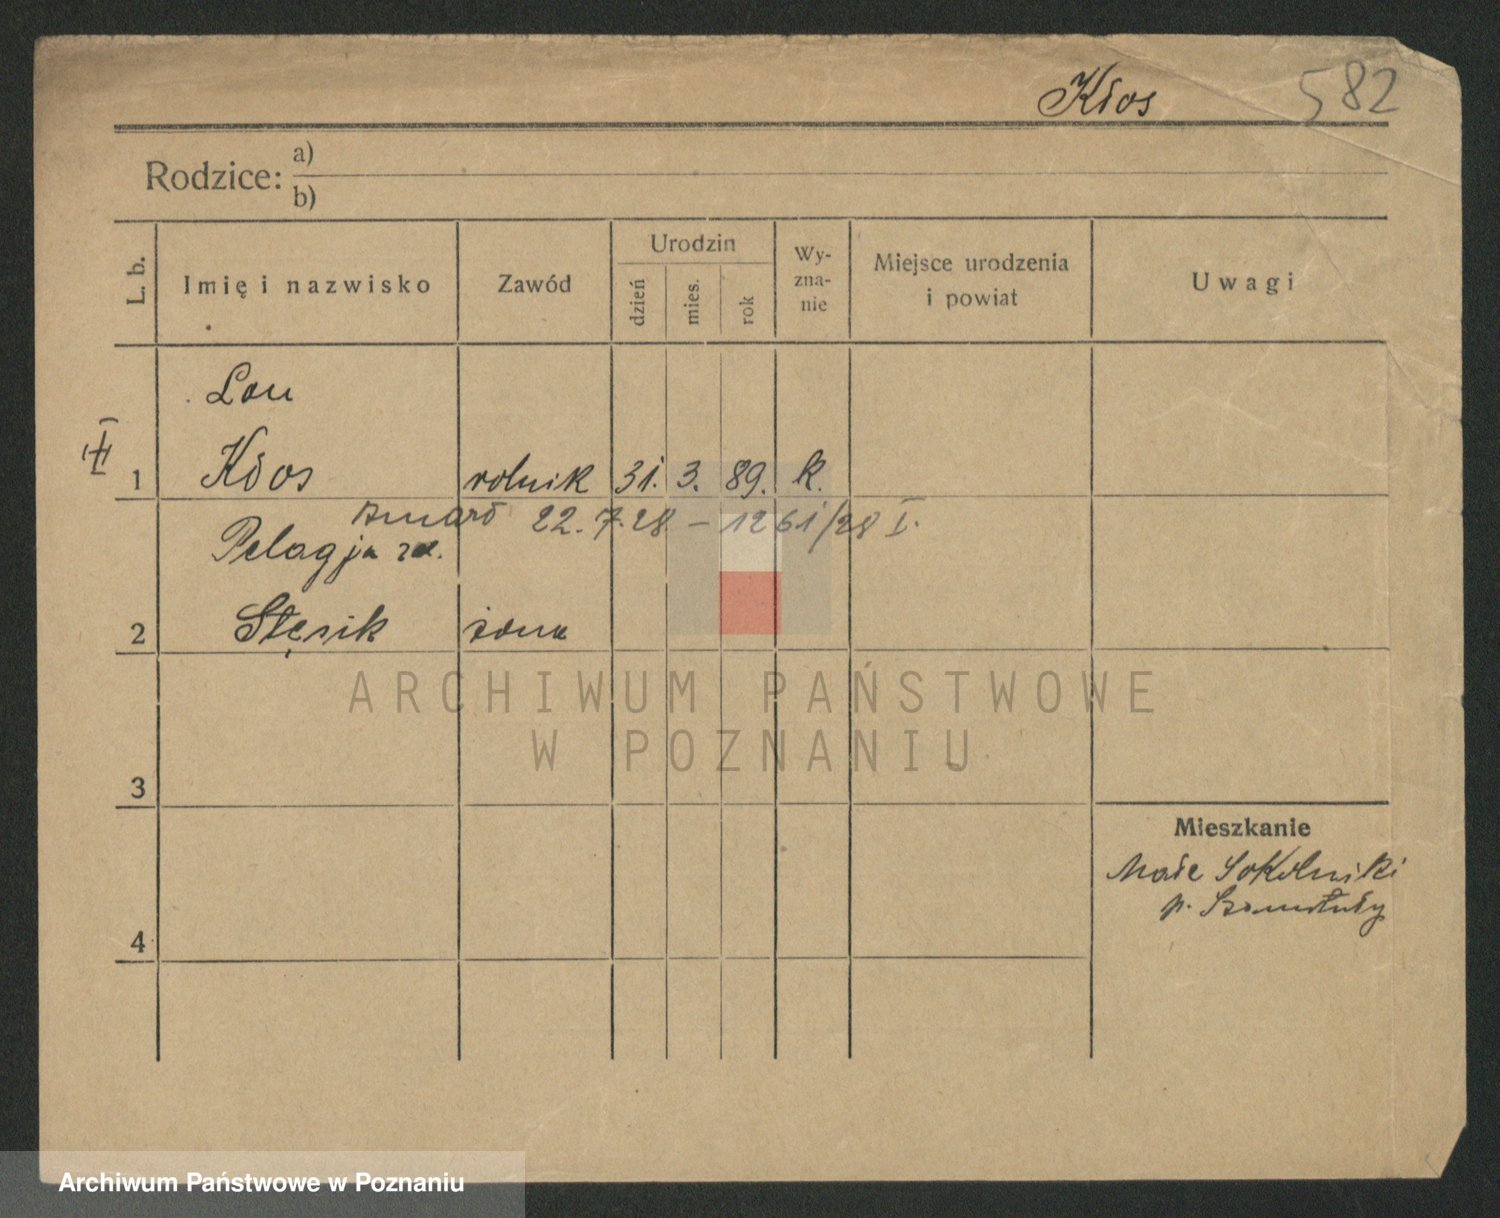 Kłos 582
Rodzice: a)
b)
L. b.
Imię i nazwisko
Zawód
Urodzin
dzień
mies.
rok
Wy-
zna-
nie
Miejsce urodzenia
i powiat
Uwagi
Leon
1 Kłos rolnik 31. 3. 89. k.
zmarł 22.7.28 – 1261/28 I.
Pelagja
2 Stęsik żona
ARCHIWUM PAŃSTWOWE
W POZNANIU
3
Mieszkanie
Małe Sokolniki
p. Szamotuły
4
Archiwum Państwowe w Poznaniu